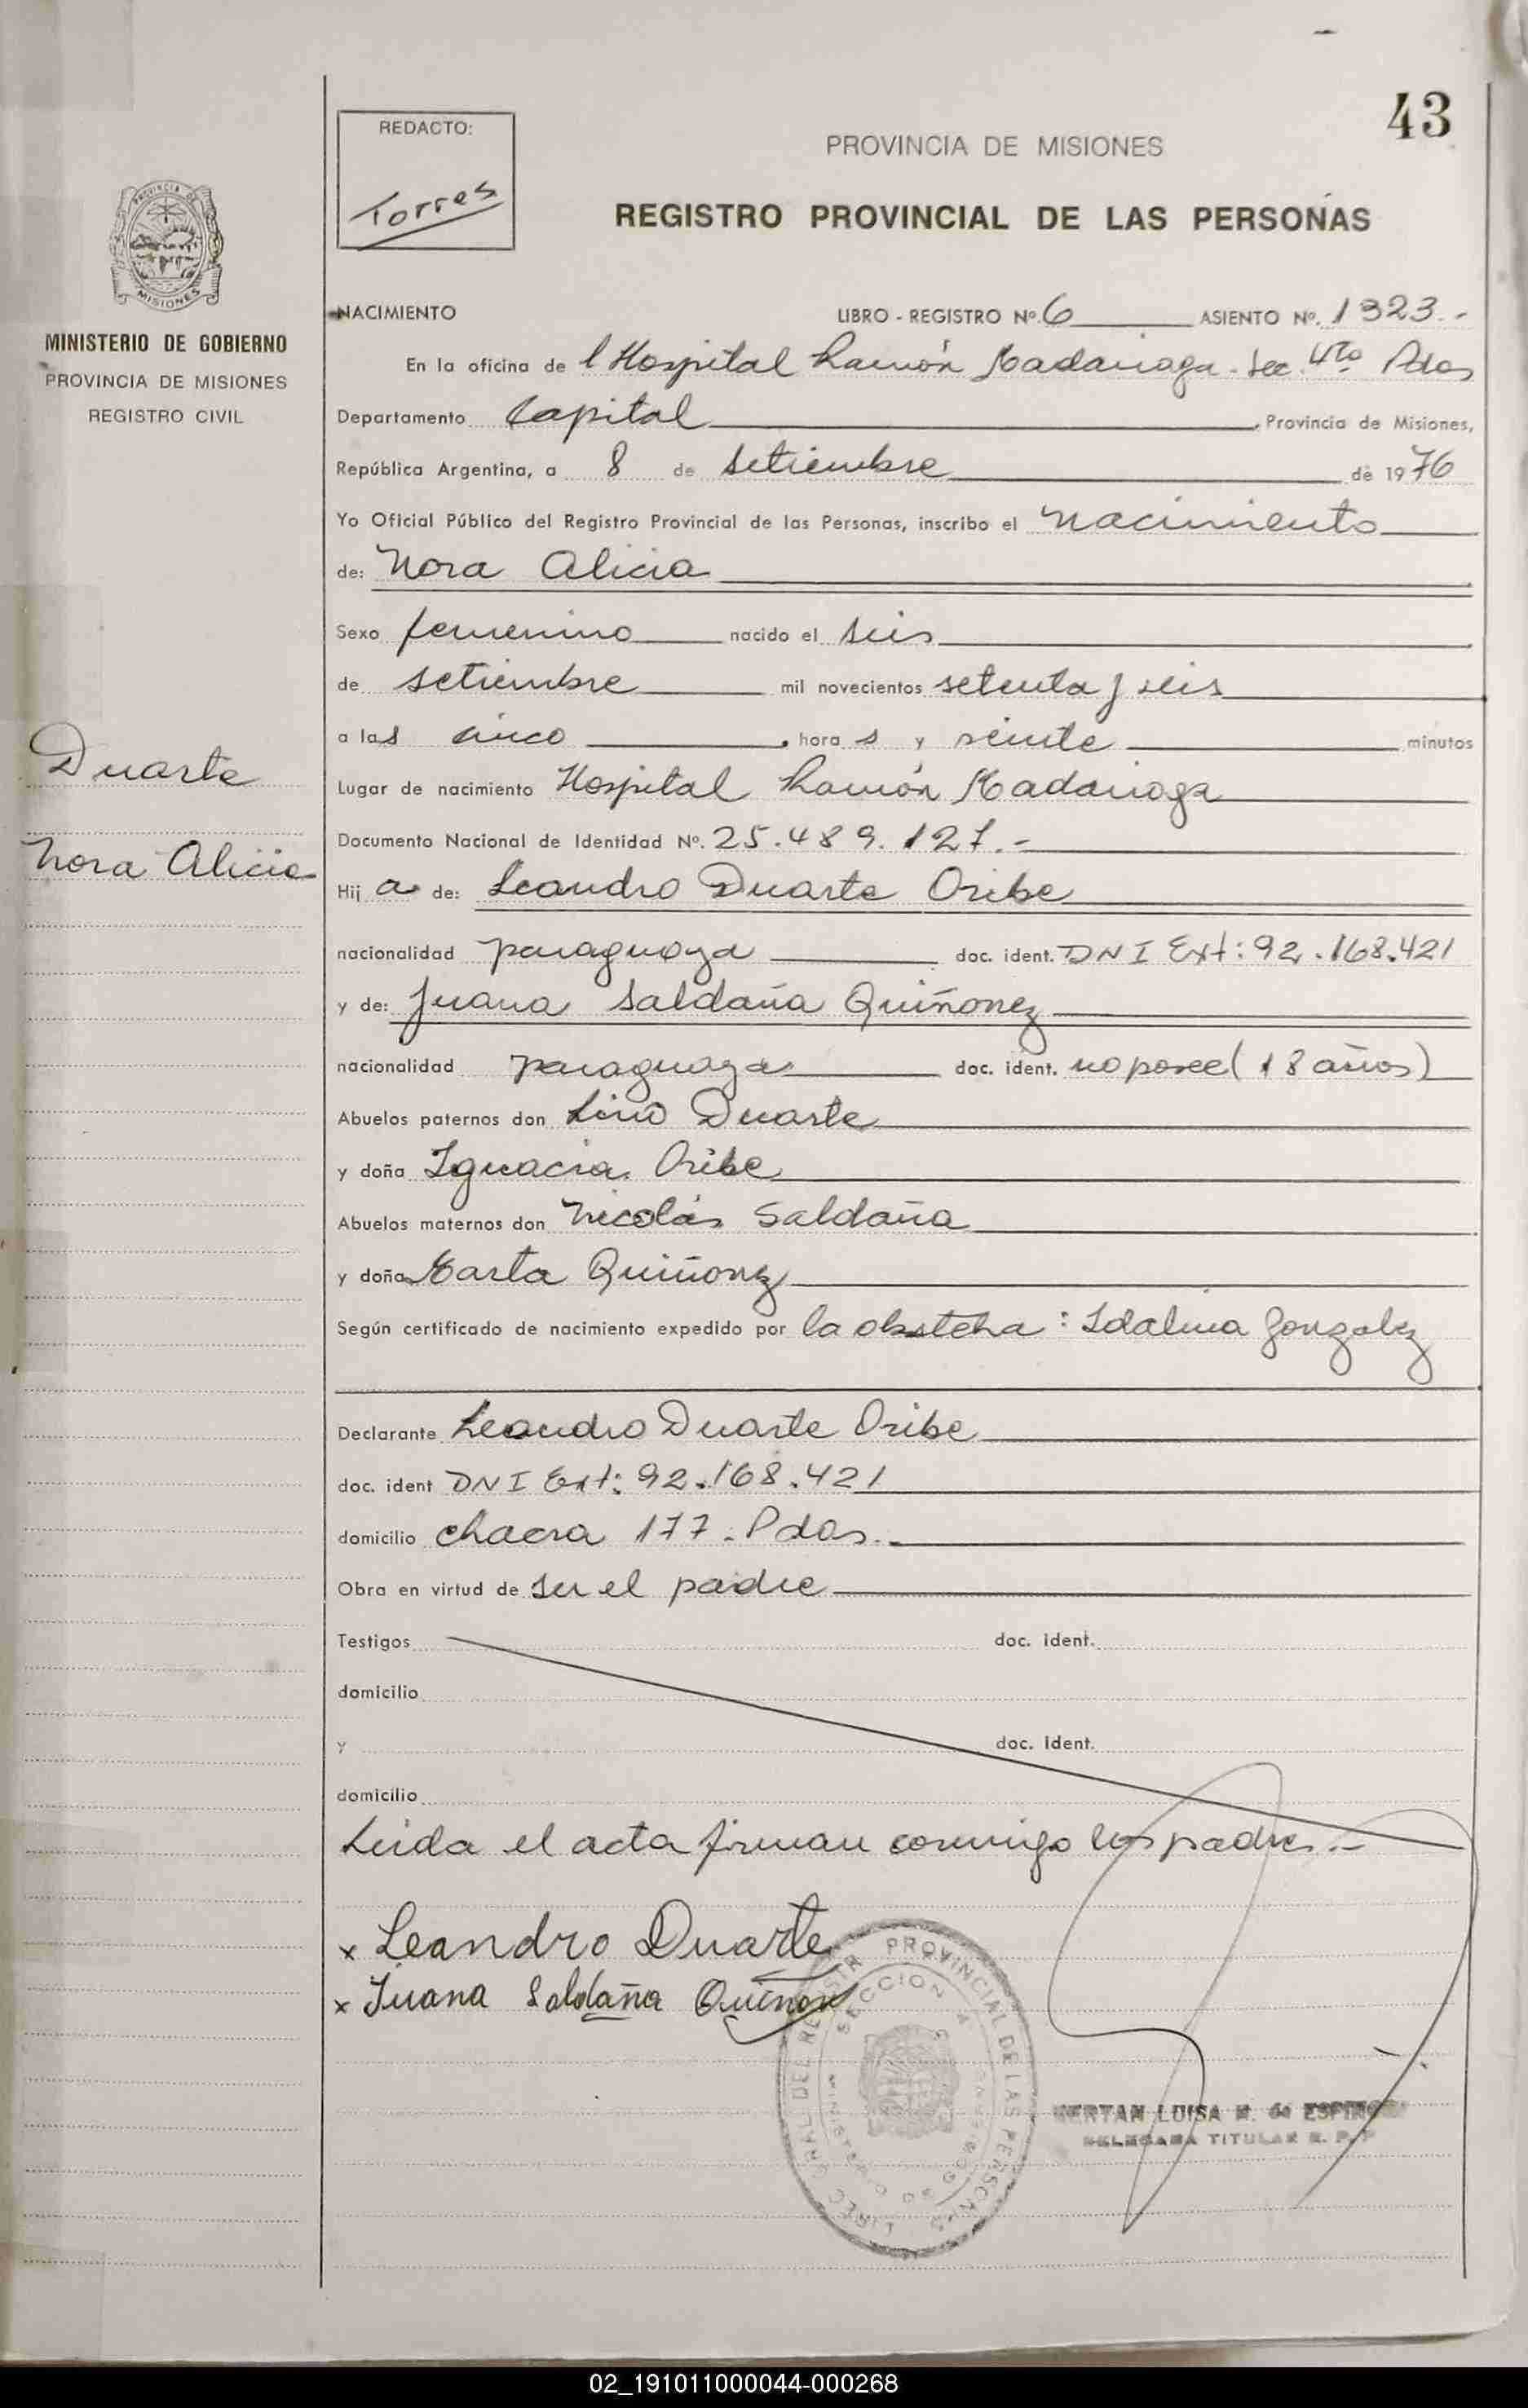 43
REDACTO:
Torres
PROVINCIA DE MISIONES
REGISTRO PROVINCIAL DE LAS PERSONAS
PROVINCIA DE
MISIONES
MINISTERIO DE GOBIERNO
PROVINCIA DE MISIONES
REGISTRO CIVIL
Duarte
Nora Alicia
NACIMIENTO LIBRO - REGISTRO Nº 6 ASIENTO Nº. 1323.-
En la oficina de l Hospital Ramón Madariaga - Sec. 4ta Pdas
Departamento Capital, Provincia de Misiones,
República Argentina, a 8 de setiembre de 1976
Yo Oficial Público del Registro Provincial de las Personas, inscribo el nacimiento
de: Nora Alicia
Sexo femenino nacido el seis
de setiembre mil novecientos setenta y seis
a las cinco, hora s y veinte minutos
Lugar de nacimiento Hospital Ramón Madariaga
Documento Nacional de Identidad Nº. 25.489.127.-
Hij a de: Leandro Duarte Oribe
nacionalidad paraguaya doc. ident. DNI Ext: 92.168.421
y de: Juana Saldaña Quiñonez
nacionalidad paraguaya doc. ident. no posee (18 años)
Abuelos paternos don Lino Duarte
y doña Ignacia Oribe
Abuelos maternos don Nicolás Saldaña
y doña Marta Quiñonez
Según certificado de nacimiento expedido por la obstetra: Idalina Gonzalez
Declarante Leandro Duarte Oribe
doc. ident DNI Ext: 92.168.421
domicilio chacra 177 - Pdas.-
Obra en virtud de ser el padre
Testigos doc. ident.
domicilio
y doc. ident.
domicilio
Leida el acta firman conmigo los padres.-
x Leandro Duarte
x Juana Saldaña Quiñonez
PROVINCIAL DE LAS PERSONAS
SECCION
LUISA M. de ESPINOSA
TITULAR R. P. P
02_191011000044-000268